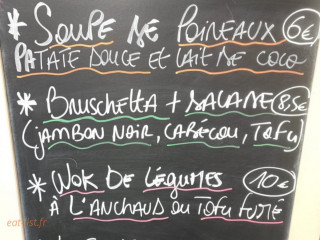 * SOUPE DE POIREAUX 6€
PATATE DOUCE et LAIT DE COCO
* BRUSCHETTA + SALADE 8,5€
(JAMBON NOIR, CABÉCOU, TOFU)
* WOK DE LÉGUMES 10€
À L'ANCHAUD OU TOFU FUMÉ